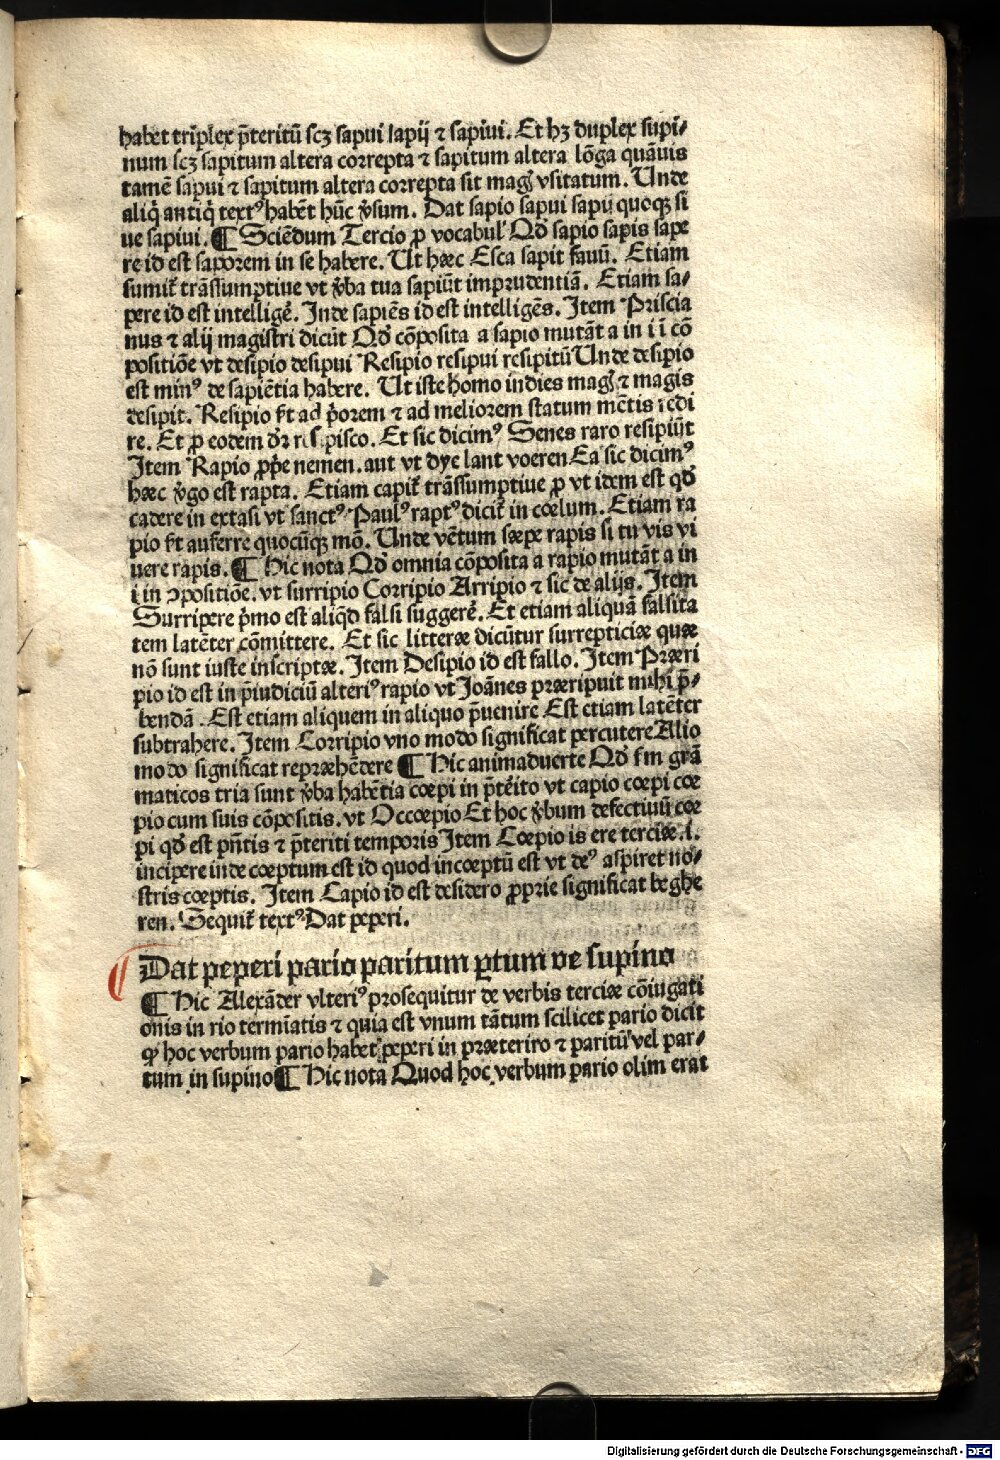 habet triplex p̄teritū scꝫ sapui sapij ⁊ sapiui. Et hꝫ duplex supi⸗
num scꝫ sapitum altera correpta ⁊ sapitum altera lōga quāuis
tamē sapui ⁊ sapitum altera correpta sit mag̃ vsitatum. Unde
aliq̄ antiq̄ textꝰ habēt hūc v̄sum. Dat sapio sapui sapij quoqꝫ si
ue sapiui. ¶ Sciēdum Tercio ꝓ vocabul' Qd̄ sapio sapis sape
re id est saporem in se habere. Ut hæc Esca sapit fauū. Etiam
sumit̄ trāssumptiue vt v̄ba tua sapiūt imprudentiā. Etiam sa⸗
pere id est intelligē. Inde sapiēs id est intelligēs. Item Priscia
nus ⁊ alij magistri dicūt Qd̄ cōposita a sapio mutāt a in i i cō
positiōe vt desipio desipui Resipio resipui resipitū Unde desipio
est minꝰ de sapiētia habere. Ut iste homo indies mag̃ ⁊ magis
desipit. Resipio st̄ ad p̄orem ⁊ ad meliorem statum mētis redi
re. Et ꝓ eodem dr̄ resipisco. Et sic dicimꝰ Senes raro resipiūt
Item Rapio ꝓp̄e nemen. aut vt dye lant voeren Ea sic dicimꝰ
hæc v̄go est rapta. Etiam capit̄ trāssumptiue ꝓ vt idem est qd̄
cadere in extasi vt sanctꝰ Paulꝰ raptꝰ dicit̄ in cœlum. Etiam ra
pio st̄ auferre quocūqꝫ mō. Unde vētum sæpe rapis si tu vis vi
uere rapis. ¶ Hic nota Qd̄ omnia cōposita a rapio mutāt a in
i in ɔpositiōe. vt surripio Corripio Arripio ⁊ sic de alijs. Item
Surripere p̄mo est aliqd̄ falsi suggerē. Et etiam aliquā falsita
tem latēter cōmittere. Et sic litteræ dicūtur surrepticiæ quæ
nō sunt iuste inscriptæ. Item Desipio id est fallo. Item Præri
pio id est in p̄iudiciū alteriꝰ rapio vt Joānes præripuit mihi p̄⸗
bendā. Est etiam aliquem in aliquo p̄uenire Est etiam latēter
subtrahere. Item Corripio vno modo significat percutere Alio
modo significat repræhēdere ¶ Hic animaduerte Qd̄ s̄m grā
maticos tria sunt v̄ba habētia cœpi in p̄tēito vt capio cœpi cœ
pio cum suis cōpositis. vt Occœpio Et hoc v̄bum defectiuū cœ
pi qd̄ est pn̄tis ⁊ p̄teriti temporis Item Cœpio is ere terciæ .i.
incipere inde cœptum est id quod incœptū est vt deꝰ aspiret no⸗
stris cœptis. Item Capio id est desidero ꝓprie significat beghe
ren. Sequit̄ textꝰ Dat peperi.
Dat peperi pario paritum ꝑtum ve supino
¶ Hic Alexāder vlteriꝰ prosequitur de verbis terciæ cōiugati
onis in rio termīatis ⁊ quia est vnum tātum scilicet pario dicit
ꝙ hoc verbum pario habet peperi in præteriro ⁊ paritū vel par⸗
tum in supino ¶ Hic nota Quod hoc verbum pario olim erat
Digitalisierung gefördert durch die Deutsche Forschungsgemeinschaft - DFG